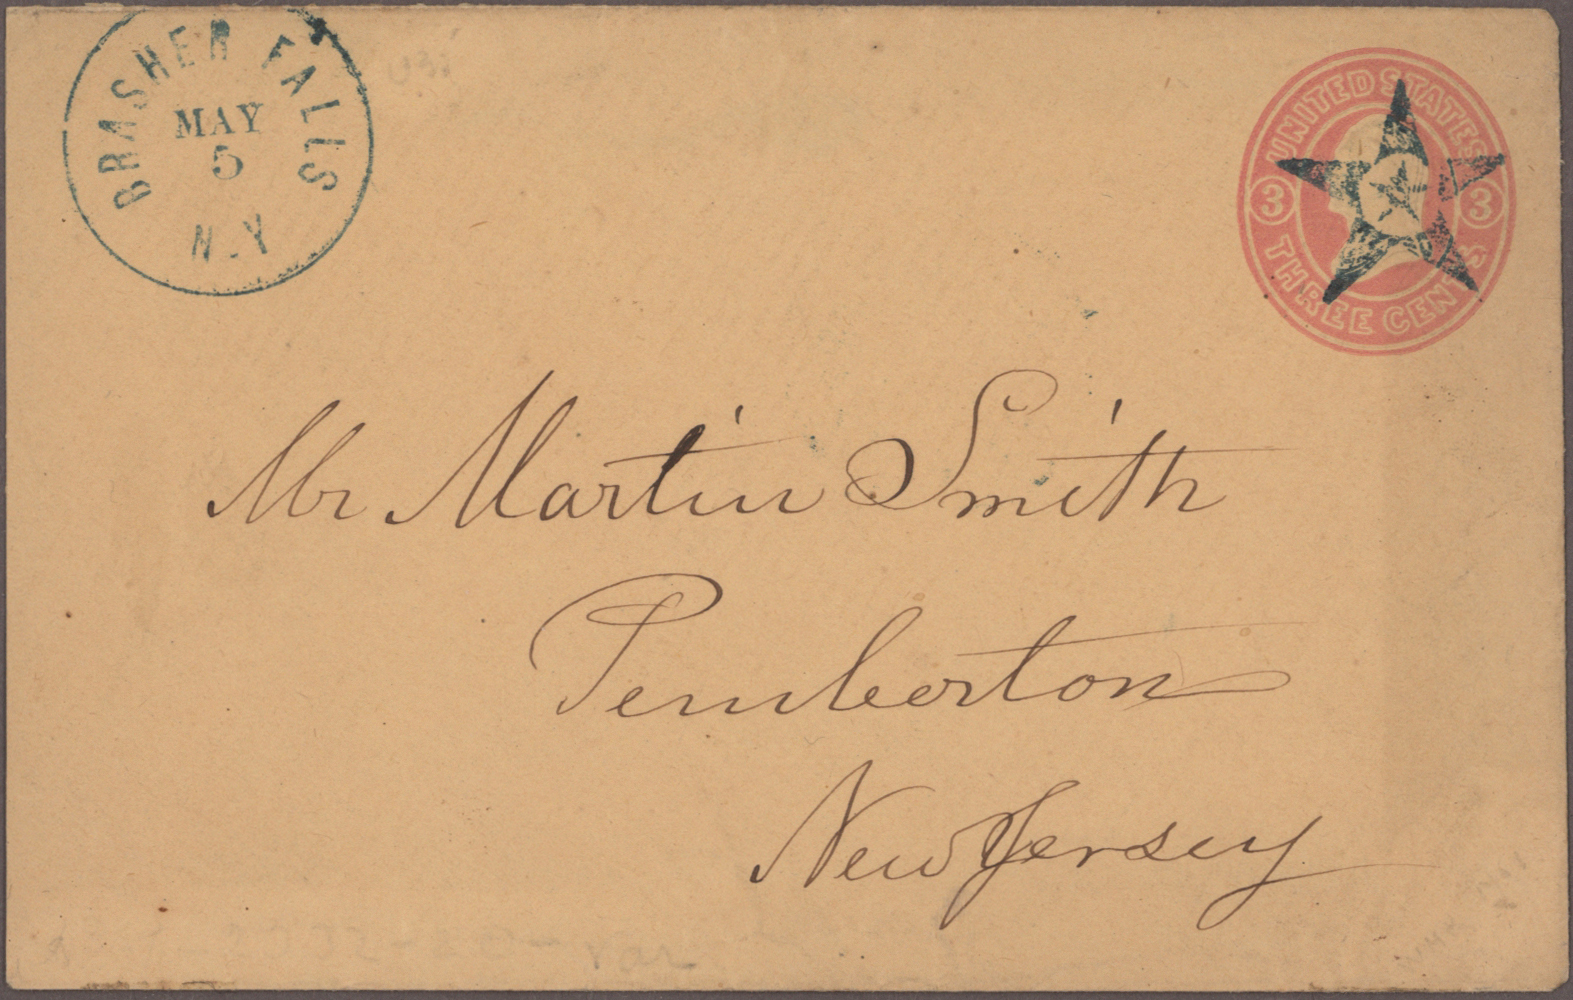 BRASHER FALLS
MAY
5
N.Y
UNITED STATES
3 3
THREE CENTS
Mr Martin Smith
Pemberton
New Jersey